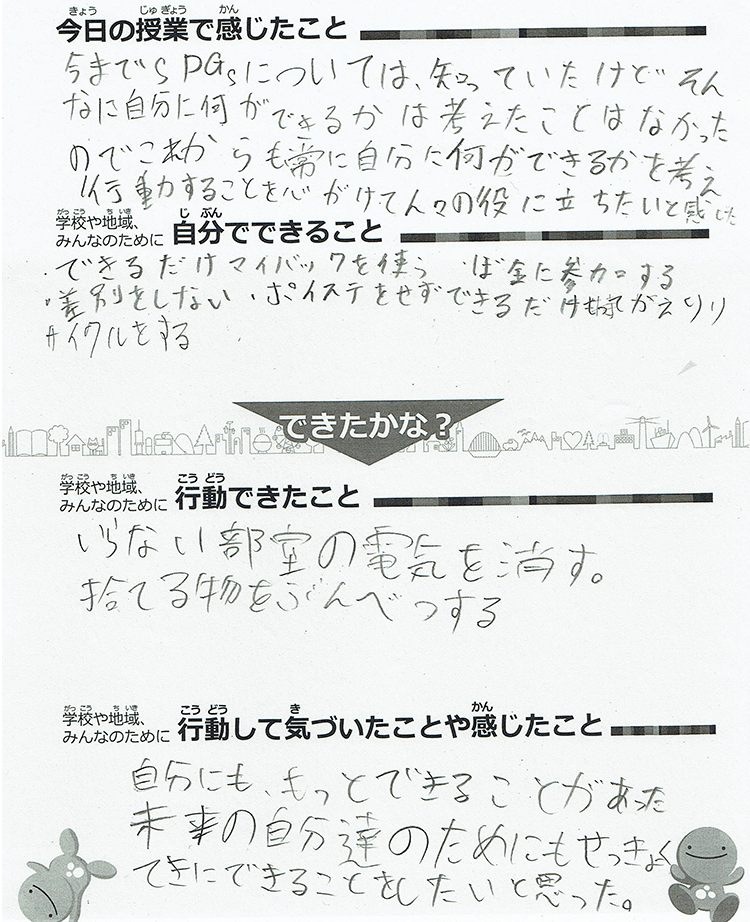 今日の授業で感じたこと
今までSDGsについては、知っていたけどそん
なに自分に何ができるかは考えたことはなかった
のでこれからも常に自分に何ができるかを考え
行動することを心がけて人々の役に立ちたいと感じた
学校や地域、みんなのために 自分でできること
・できるだけマイバックを使う ・ぼ金に参加する
・差別をしない ・ポイステをせずできるだけ持ちかえりリ
サイクルをする
できたかな？
学校や地域、みんなのために 行動できたこと
いらない部室の電気を消す。
捨てる物をぶんべつする
学校や地域、みんなのために 行動して気づいたことや感じたこと
自分にも、もっとできることがあった
未来の自分達のためにもせっきょく
てきにできることをしたいと思った。